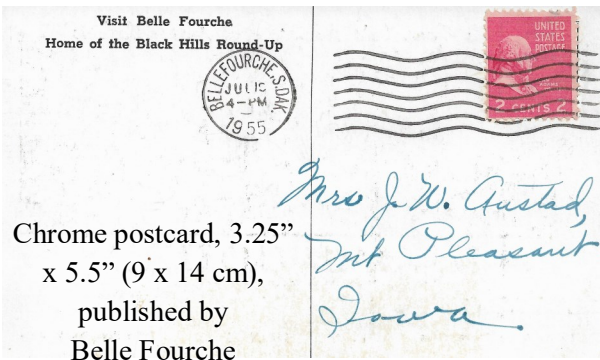 Visit Belle Fourche
Home of the Black Hills Round-Up
BELLEFOURCHE, S.DAK.
JUL
4-PM
1955
UNITED
STATES
POSTAGE
2 CENTS 2
Mrs J. W. Austad,
Mt Pleasant
Iowa.
Chrome postcard, 3.25”
x 5.5” (9 x 14 cm),
published by
Belle Fourche